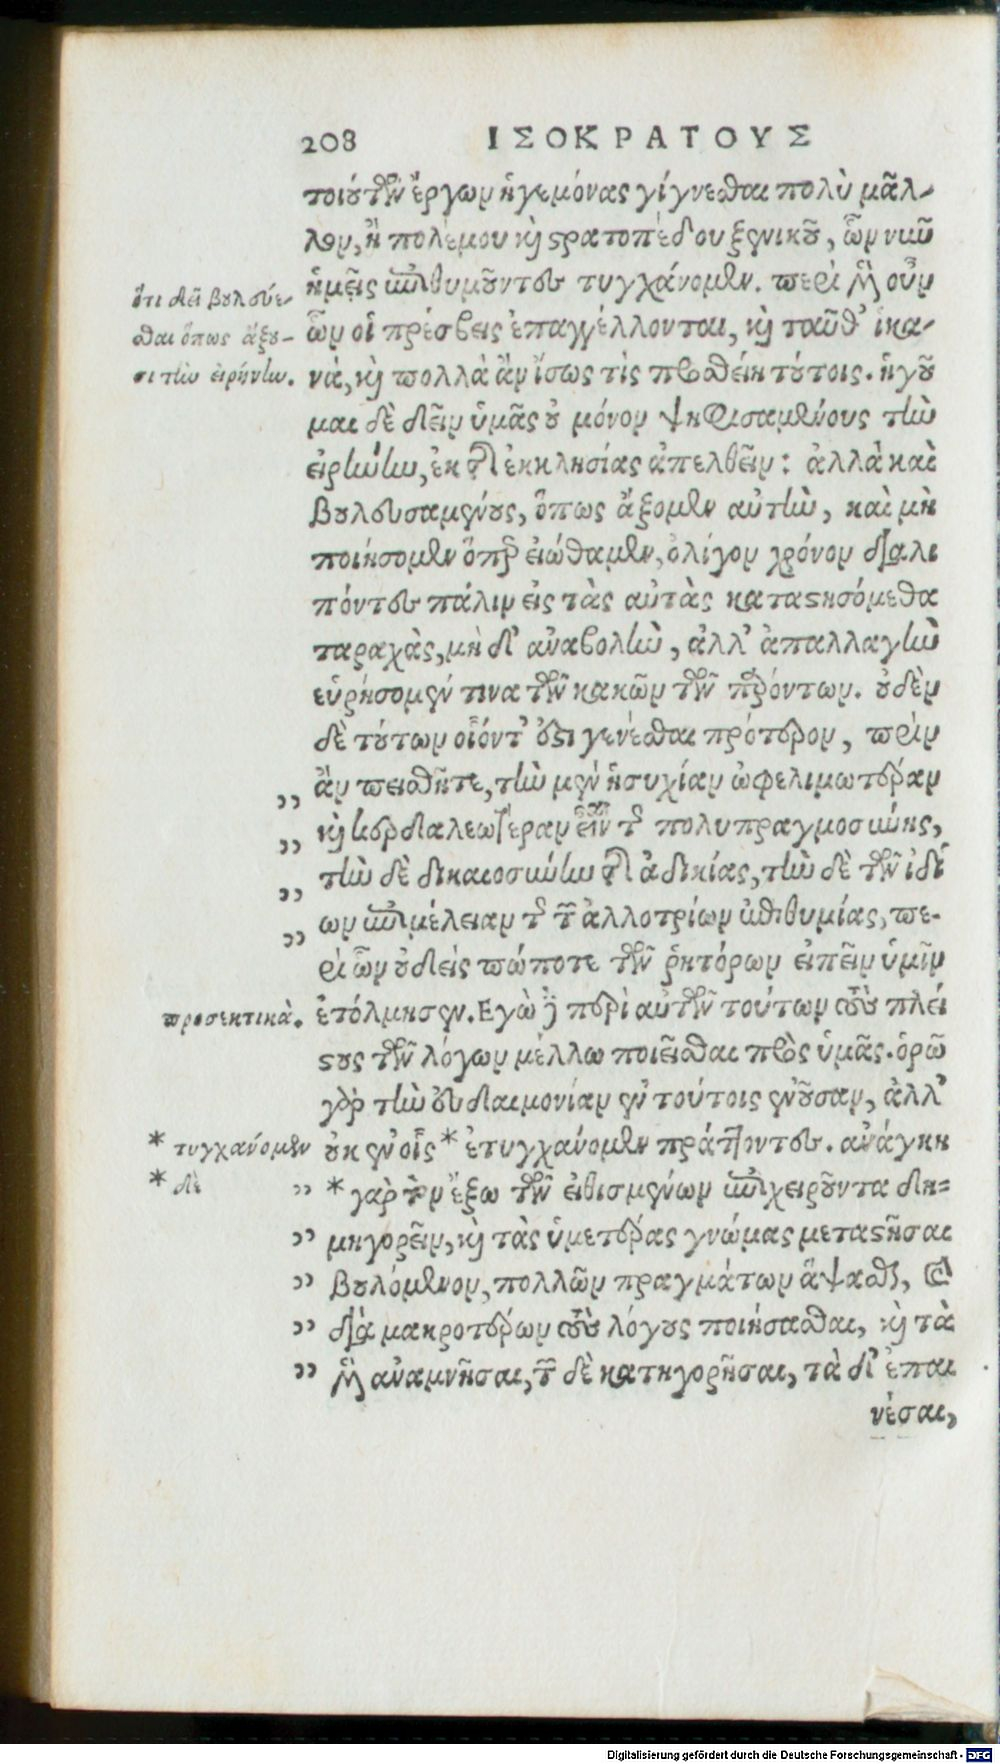 208 ΙΣΟΚΡΑΤΟΥΣ
τοιούτων ἔργων ἡγεμόνας γίγνεσθαι πολὺ μᾶλ-
λον, ἢ πολέμου καὶ στρατοπέδου ξενικοῦ, ὧν νῦν
ἡμεῖς ἐπιθυμοῦντες τυγχάνομεν. περὶ μὲν οὖν
ὅτι δεῖ βουλεύε-
σθαι ὅπως ἄξου-
σι τὴν εἰρήνην.
ὧν οἱ πρέσβεις ἐπαγγέλλονται, καὶ ταῦθ' ἱκα-
νά, καὶ πολλὰ ἂν ἴσως τὶς προσθείη τούτοις. ἡγοῦ
μαι δὲ δεῖν ὑμᾶς οὐ μόνον ψηφισαμένους τὴν
εἰρήνην, ἐκ τῆς ἐκκλησίας ἀπελθεῖν: ἀλλὰ καὶ
βουλευσαμένους, ὅπως ἄξομεν αὐτὴν, καὶ μὴ
ποιήσομεν ὅπερ εἰώθαμεν, ὀλίγον χρόνον διαλι
πόντες πάλιν εἰς τὰς αὐτὰς καταστησόμεθα
ταραχὰς, μὴ δ' ἀναβολὴν, ἀλλ' ἀπαλλαγὴν
εὑρήσομέν τινα τῶν κακῶν τῶν παρόντων. οὐδὲν
δὲ τούτων οἷόντ' ἐστι γενέσθαι πρότερον, πρὶν
ἂν πεισθῆτε, τὴν μὲν ἡσυχίαν ὠφελιμωτέραν
„ καὶ κερδαλεωτέραν εἶναι τῆς πολυπραγμοσύνης,
„ τὴν δὲ δικαιοσύνην τῆς ἀδικίας, τὴν δὲ τῶν ἰδί
„ ων ἐπιμέλειαν τῆς τῶν ἀλλοτρίων ἐπιθυμίας, πε-
„ ρὶ ὧν οὐδεὶς πώποτε τῶν ῥητόρων εἰπεῖν ὑμῖν
προσεκτικὰ.
ἐτόλμησεν. Εγὼ δὲ περὶ αὐτῶν τούτων τοὺς πλεί
στους τῶν λόγων μέλλω ποιεῖσθαι πρὸς ὑμᾶς. ὁρῶ
γὰρ τὴν εὐδαιμονίαν ἐν τούτοις ἐνοῦσαν, ἀλλ'
* τυγχάνομεν
οὐκ ἐν οἷς * ἐτυγχάνομεν πράττοντες. ἀνάγκη
* δὲ
„ * γὰρ τὸν ἔξω τῶν εἰθισμένων ἐπιχειροῦντα δη=
„ μηγορεῖν, καὶ τὰς ὑμετέρας γνώμας μεταστῆσαι
„ βουλόμενον, πολλῶν πραγμάτων ἅψασθαι, καὶ
„ διὰ μακροτέρων τοὺς λόγους ποιήσασθαι, καὶ τὰ
„ μὲν ἀναμνῆσαι, τῶν δὲ κατηγορῆσαι, τὰ δ' ἐπαι
νέσαι,
Digitalisierung gefördert durch die Deutsche Forschungsgemeinschaft - DFG